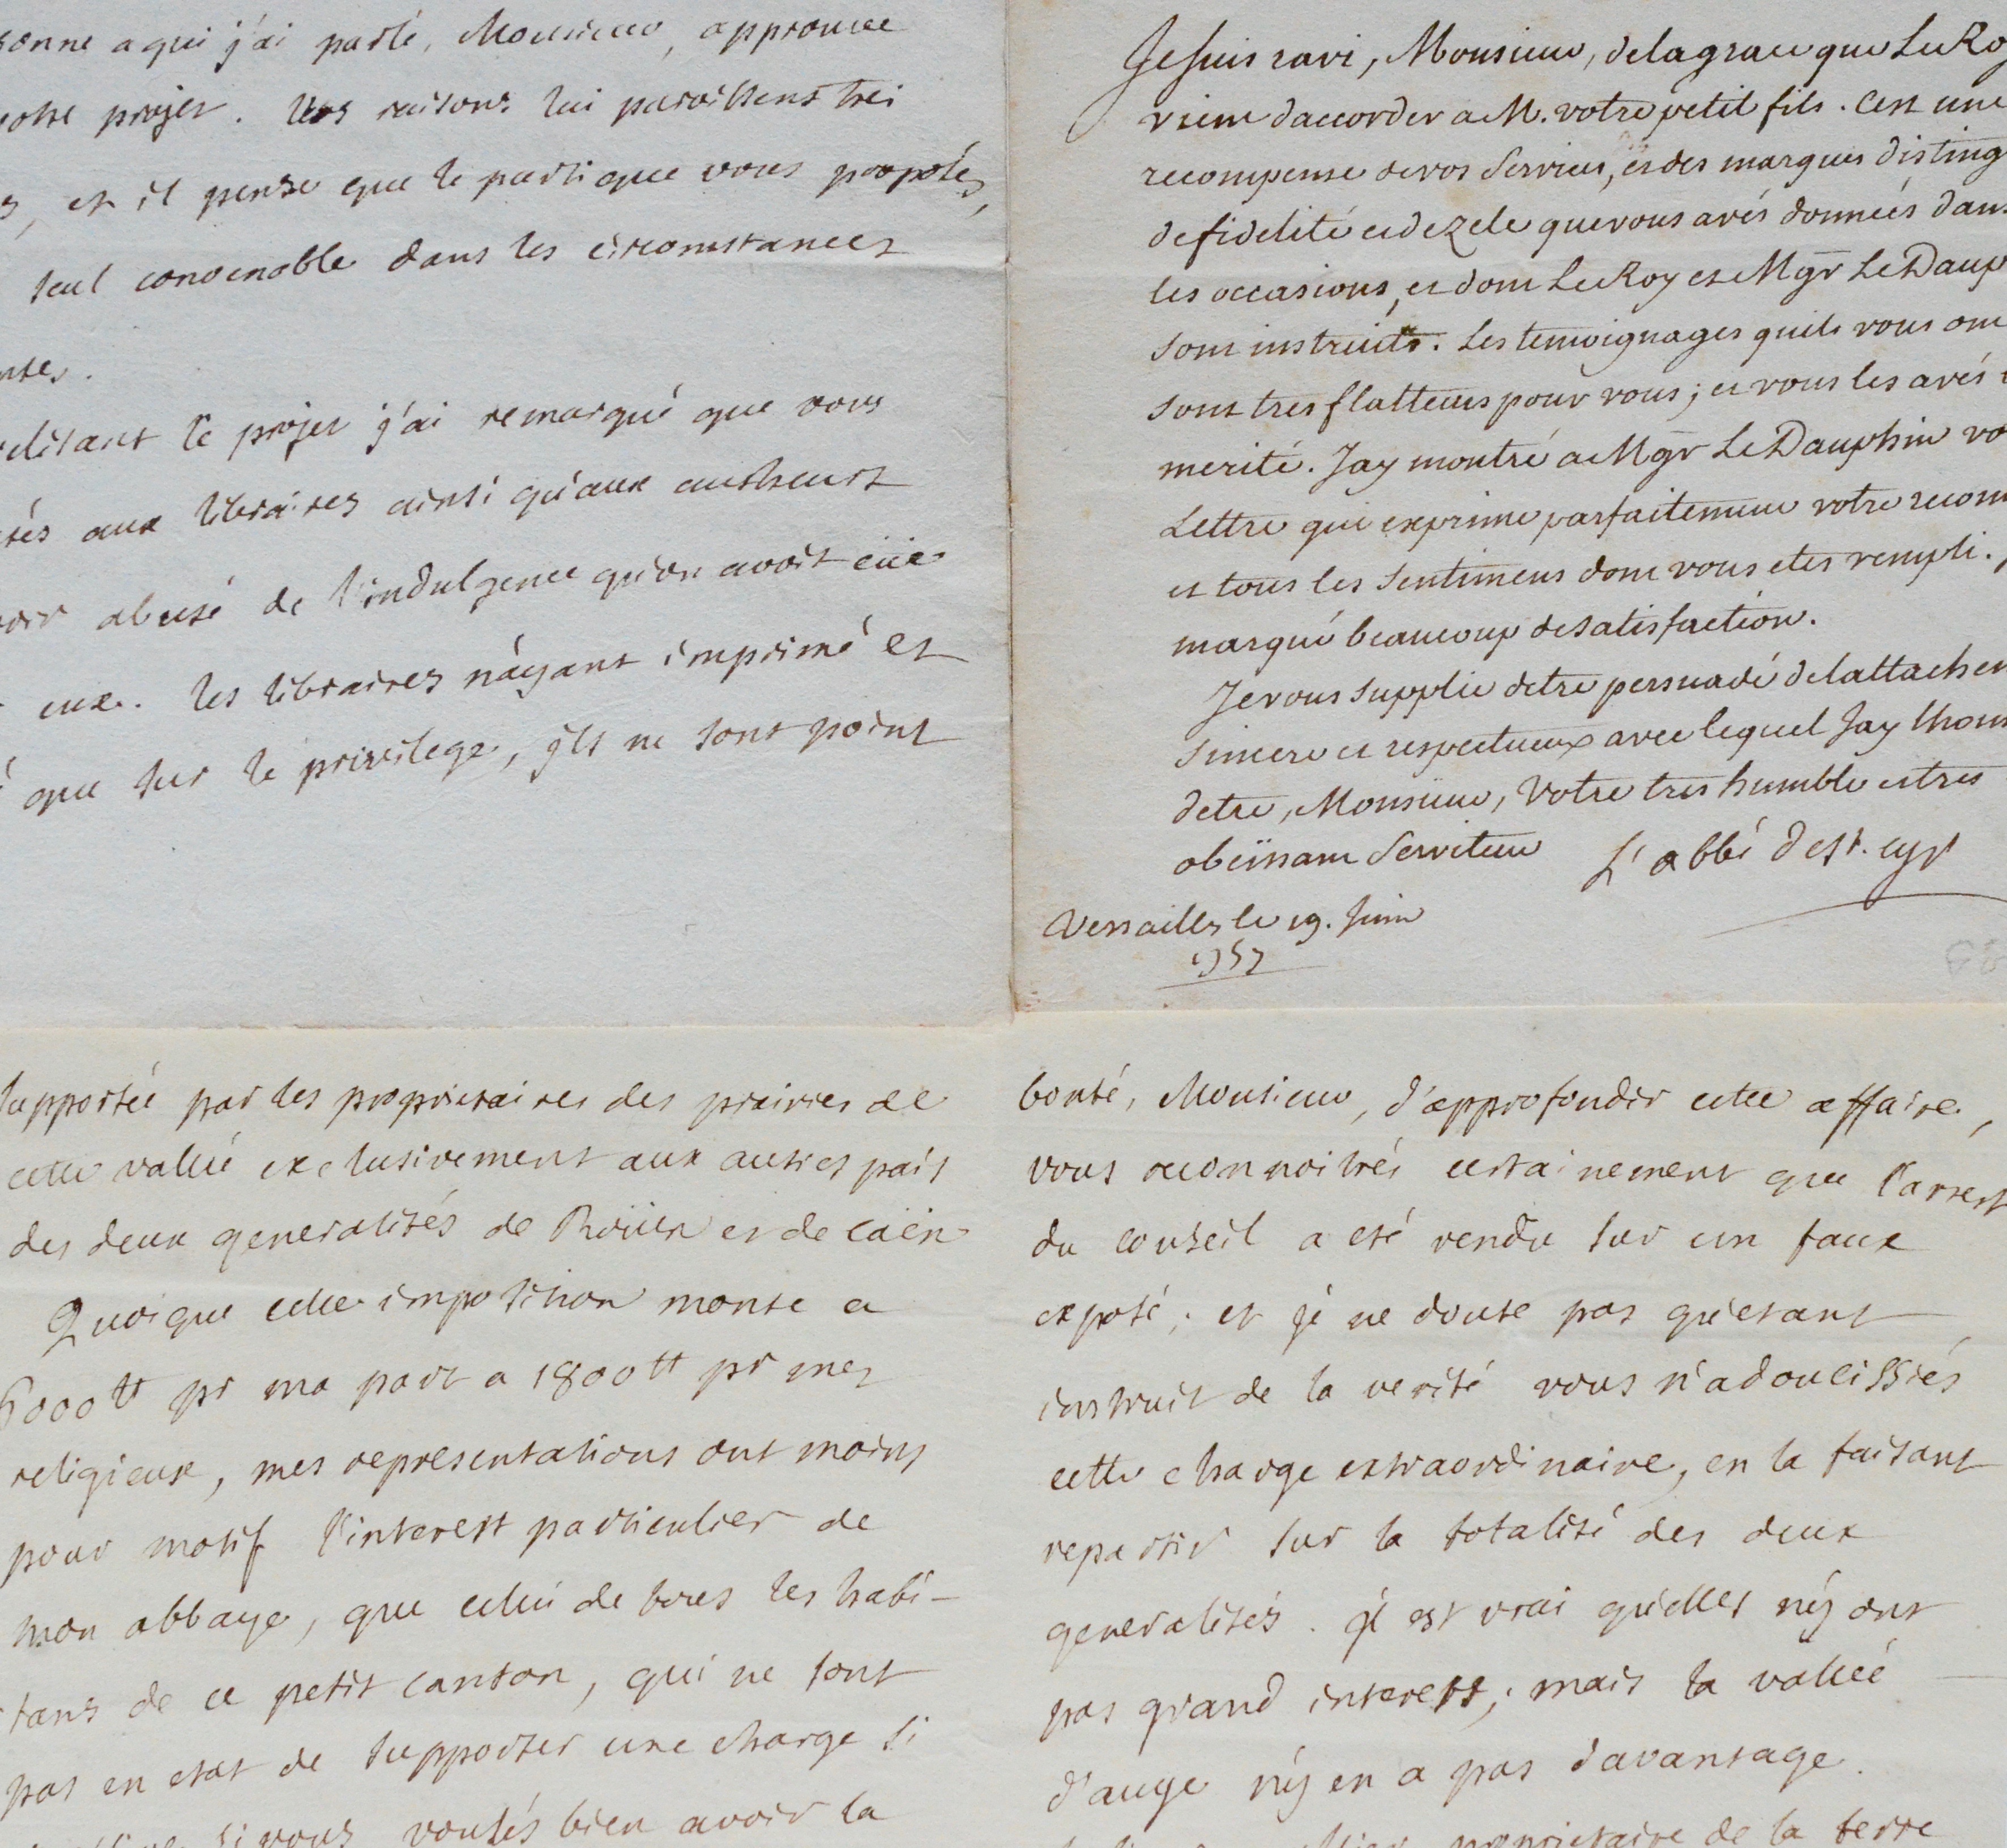 a qui j'ai parlé, Monsieur, approuve
projet. Vos raisons lui paroissent tres
et il pense que le parti que vous proposés,
seul convenable dans les circonstances
le projet j'ai remarqué que vous
aux libraires ainsi qu'aux autheurs
abusé de l'indulgence qu'on avoit eüe
eux. les libraires n'ayant imprimé et
que sur le privilege, ils ne sont point
Je suis ravi, Monsieur, de la grace que Le Roy
vient daccorder a M. votre petit fils. Cest une
recompense de vos Services, et des marques disting
de fidelité et de zele que vous avés données dans
les occasions, et dont Le Roy et Mgr Le Daup
sont instruits. Les temoignages quils vous ont
sont tres flatteurs pour vous; et vous les avés
merité. Jay montré a Mgr Le Dauphin vo
Lettre qui exprime parfaitement votre reconn
et tous les Sentimens dont vous etes rempli.
marqué beaucoup de satisfaction.
Je vous supplie detre persuadé de lattachem
sincere et respectueux avec lequel Jay lhonn
detre, Monsieur, Votre tres humble et tres
obeïssant Serviteur L'abbé de st. cyr
Versailles le 19. Juin
1757
supportée par les proprietaires des prairies de
cette vallée exclusivement aux autres païs
des deux generalités de Roüen et de caën
Quoique cette imposition monte a
6000tt pr ma part a 1800tt pr mes
religieux, mes representations ont moins
pour motif l'interest particulier de
mon abbaye, que celui de tous les habi-
tans de ce petit canton, qui ne sont
pas en etat de supporter une charge si
si vous voulés bien avoir la
bonté, Monsieur, d'approfondir cette affaire,
vous reconnoitrés certainement que l'arrest
du conseil a eté rendu sur un faux
exposé; et je ne doute pas qu'etant
instruit de la verité vous n'adoucissiés
cette charge extraordinaire, en la faisant
repartir sur la totalité des deux
generalités. il est vrai qu'elles n'y ont
pas grand interest; mais la vallée
d'auge n'y en a pas davantage.
proprietaire de la terre